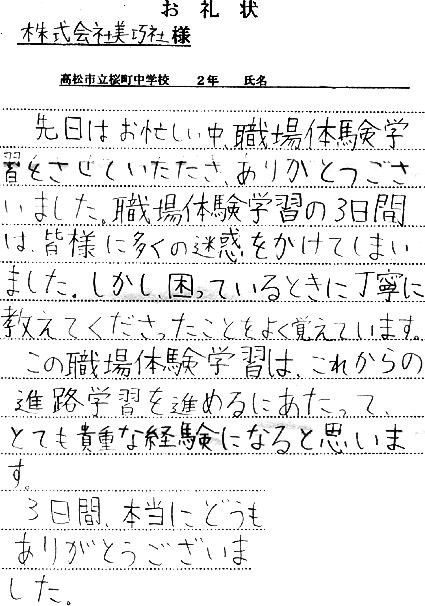 お礼状
株式会社美巧社様
高松市立桜町中学校 2年 氏名
先日はお忙しい中、職場体験学
習をさせていただき、ありがとうござ
いました。職場体験学習の3日間
は、皆様に多くの迷惑をかけてしまい
ました。しかし、困っているときに丁寧に
教えてくださったことをよく覚えています。
この職場体験学習は、これからの
進路学習を進めるにあたって、
とても貴重な経験になると思いま
す。
3日間、本当にどうも
ありがとうございま
した。